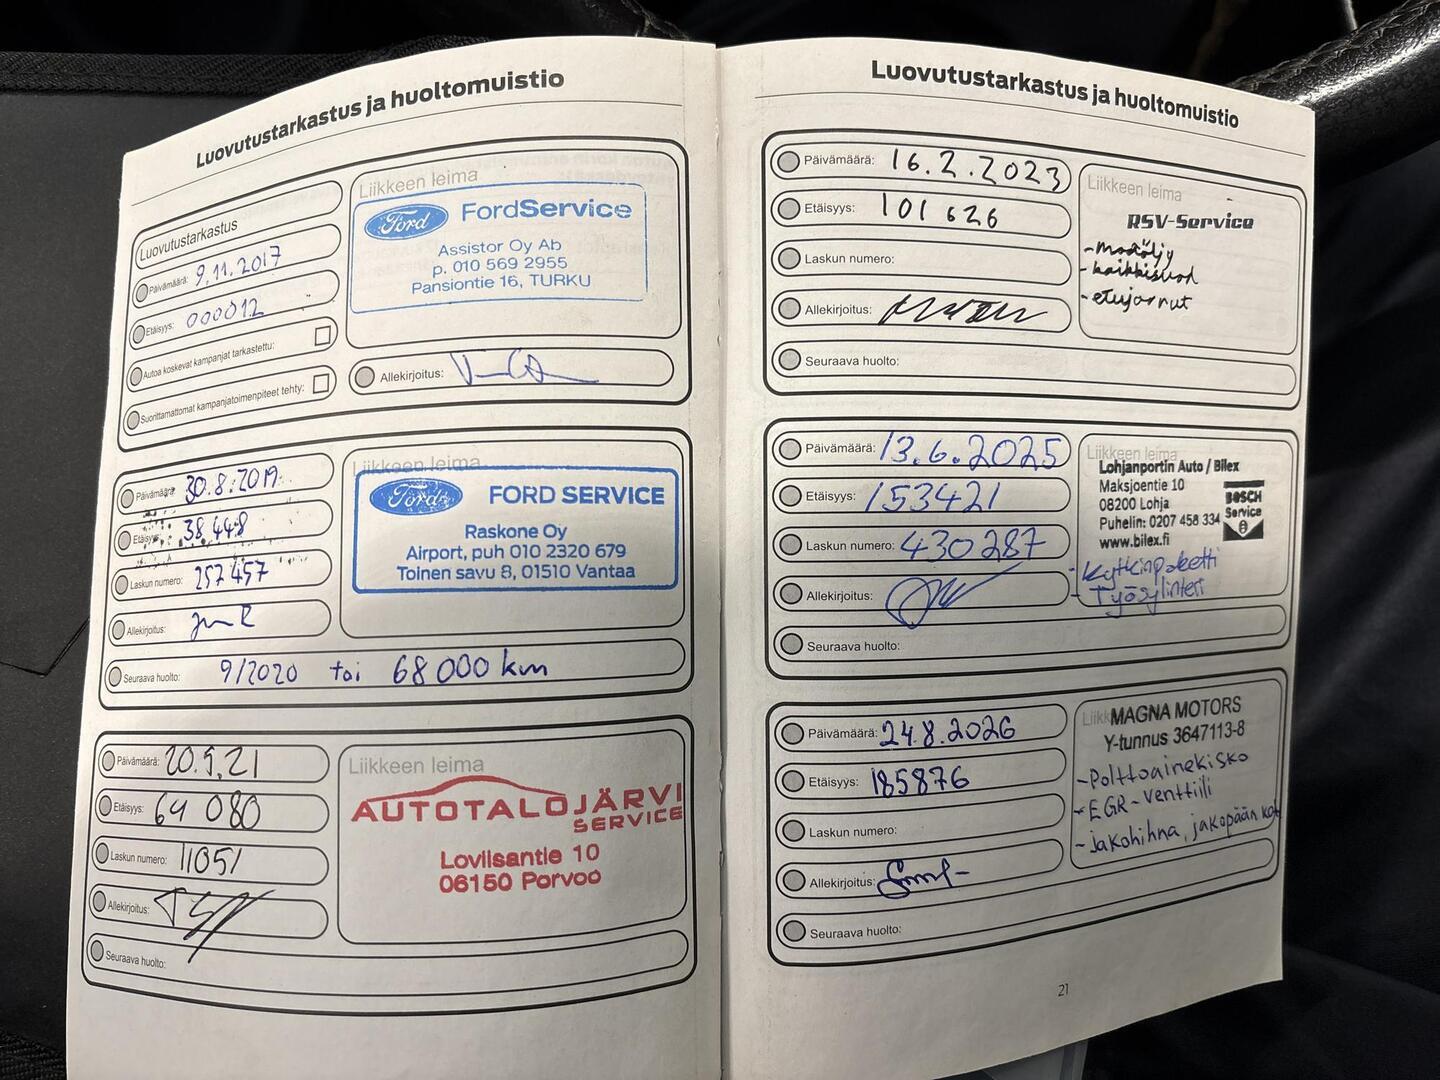 Luovutustarkastus ja huoltomuistio
Luovutustarkastus
Päivämäärä: 9.11.2017
Etäisyys: 000012
Autoa koskevat kampanjat tarkastettu:
Suorittamattomat kampanjatoimenpiteet tehty:
Liikkeen leima
Ford FordService
Assistor Oy Ab
p. 010 569 2955
Pansiontie 16, TURKU
Allekirjoitus:
Päivämäärä: 30.8.2019
Etäisyys: 38 448
Laskun numero: 257 457
Allekirjoitus:
Seuraava huolto: 9/2020 tai 68 000 km
Liikkeen leima
Ford FORD SERVICE
Raskone Oy
Airport, puh 010 2320 679
Toinen savu 8, 01510 Vantaa
Päivämäärä: 20.5.21
Etäisyys: 64 080
Laskun numero: 11051
Allekirjoitus:
Seuraava huolto:
Liikkeen leima
AUTOTALOJÄRVI
SERVICE
Loviisantie 10
06150 Porvoo
Luovutustarkastus ja huoltomuistio
Päivämäärä: 16.2.2023
Etäisyys: 101 626
Laskun numero:
Allekirjoitus:
Seuraava huolto:
Liikkeen leima
RSV-Service
- moöljy
- kaikkisuod
- etujarrut
Päivämäärä: 13.6.2025
Etäisyys: 153421
Laskun numero: 430287
Allekirjoitus:
Seuraava huolto:
Liikkeen leima
Lohjanportin Auto / Bilex
Maksjoentie 10
08200 Lohja
Puhelin: 0207 458 334
www.bilex.fi
BOSCH
Service
- Kytkinpaketti
- Työsylinteri
Päivämäärä: 24.8.2026
Etäisyys: 185876
Laskun numero:
Allekirjoitus:
Seuraava huolto:
MAGNA MOTORS
Y-tunnus 3647113-8
- Polttoainekisko
- EGR-venttiili
- Jakohihna, jakopään
21